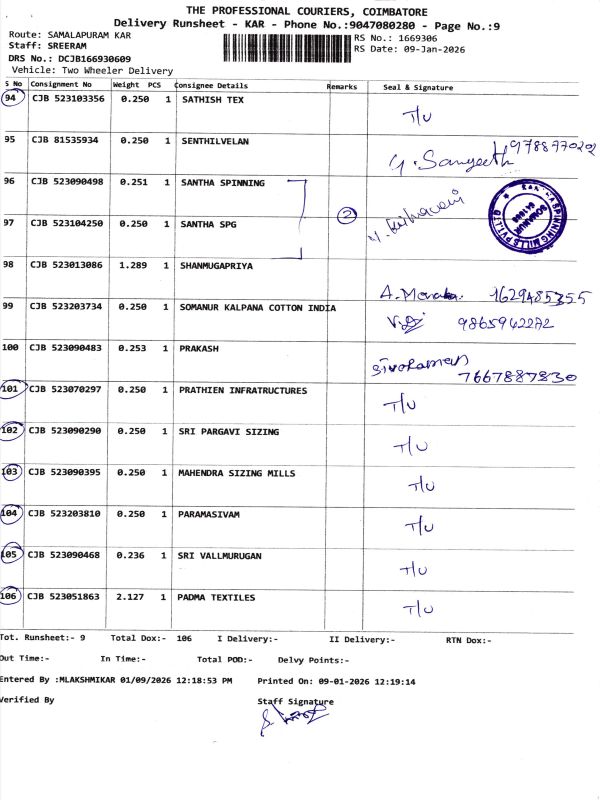 THE PROFESSIONAL COURIERS, COIMBATORE
Delivery Runsheet - KAR - Phone No.:9047080280 - Page No.:9
Route: SAMALAPURAM KAR
RS No.: 1669306
Staff: SREERAM
RS Date: 09-Jan-2026
DRS No.: DCJB166930609
Vehicle: Two Wheeler Delivery
S No Consignment No Weight PCS Consignee Details Remarks Seal & Signature
94 CJB 523103356 0.250 1 SATHISH TEX T/U
95 CJB 81535934 0.250 1 SENTHILVELAN G. Sangeeth 9788770202
96 CJB 523090498 0.251 1 SANTHA SPINNING
2
97 CJB 523104250 0.250 1 SANTHA SPG
98 CJB 523013086 1.289 1 SHANMUGAPRIYA
99 CJB 523203734 0.250 1 SOMANUR KALPANA COTTON INDIA 9865962272
100 CJB 523090483 0.253 1 PRAKASH 7667887830
101 CJB 523070297 0.250 1 PRATHIEN INFRATRUCTURES T/U
102 CJB 523090290 0.250 1 SRI PARGAVI SIZING T/U
103 CJB 523090395 0.250 1 MAHENDRA SIZING MILLS T/U
104 CJB 523203810 0.250 1 PARAMASIVAM T/U
105 CJB 523090468 0.236 1 SRI VALLMURUGAN T/U
106 CJB 523051863 2.127 1 PADMA TEXTILES T/U
Tot. Runsheet:- 9 Total Dox:- 106 I Delivery:- II Delivery:- RTN Dox:-
Out Time:- In Time:- Total POD:- Delvy Points:-
Entered By :MLAKSHMIKAR 01/09/2026 12:18:53 PM Printed On: 09-01-2026 12:19:14
Verified By Staff Signature